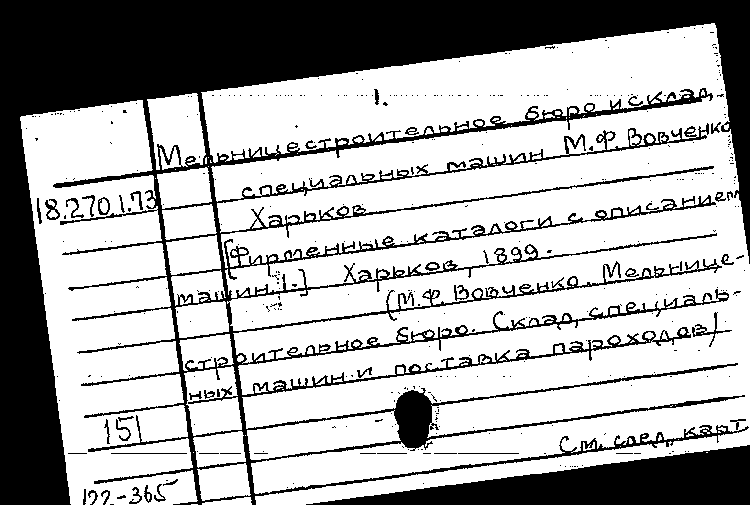 1.
Мельницестроительное бюро и склад
специальных машин М.Ф. Вовченко
18.270.1.73
Харьков
[Фирменные каталоги с описанием
машин. 1.] Харьков, 1899.
(М.Ф. Вовченко. Мельнице-
строительное бюро. Склад специаль-
ных машин и поставка пароходов)
151
См. след. карт
122-365